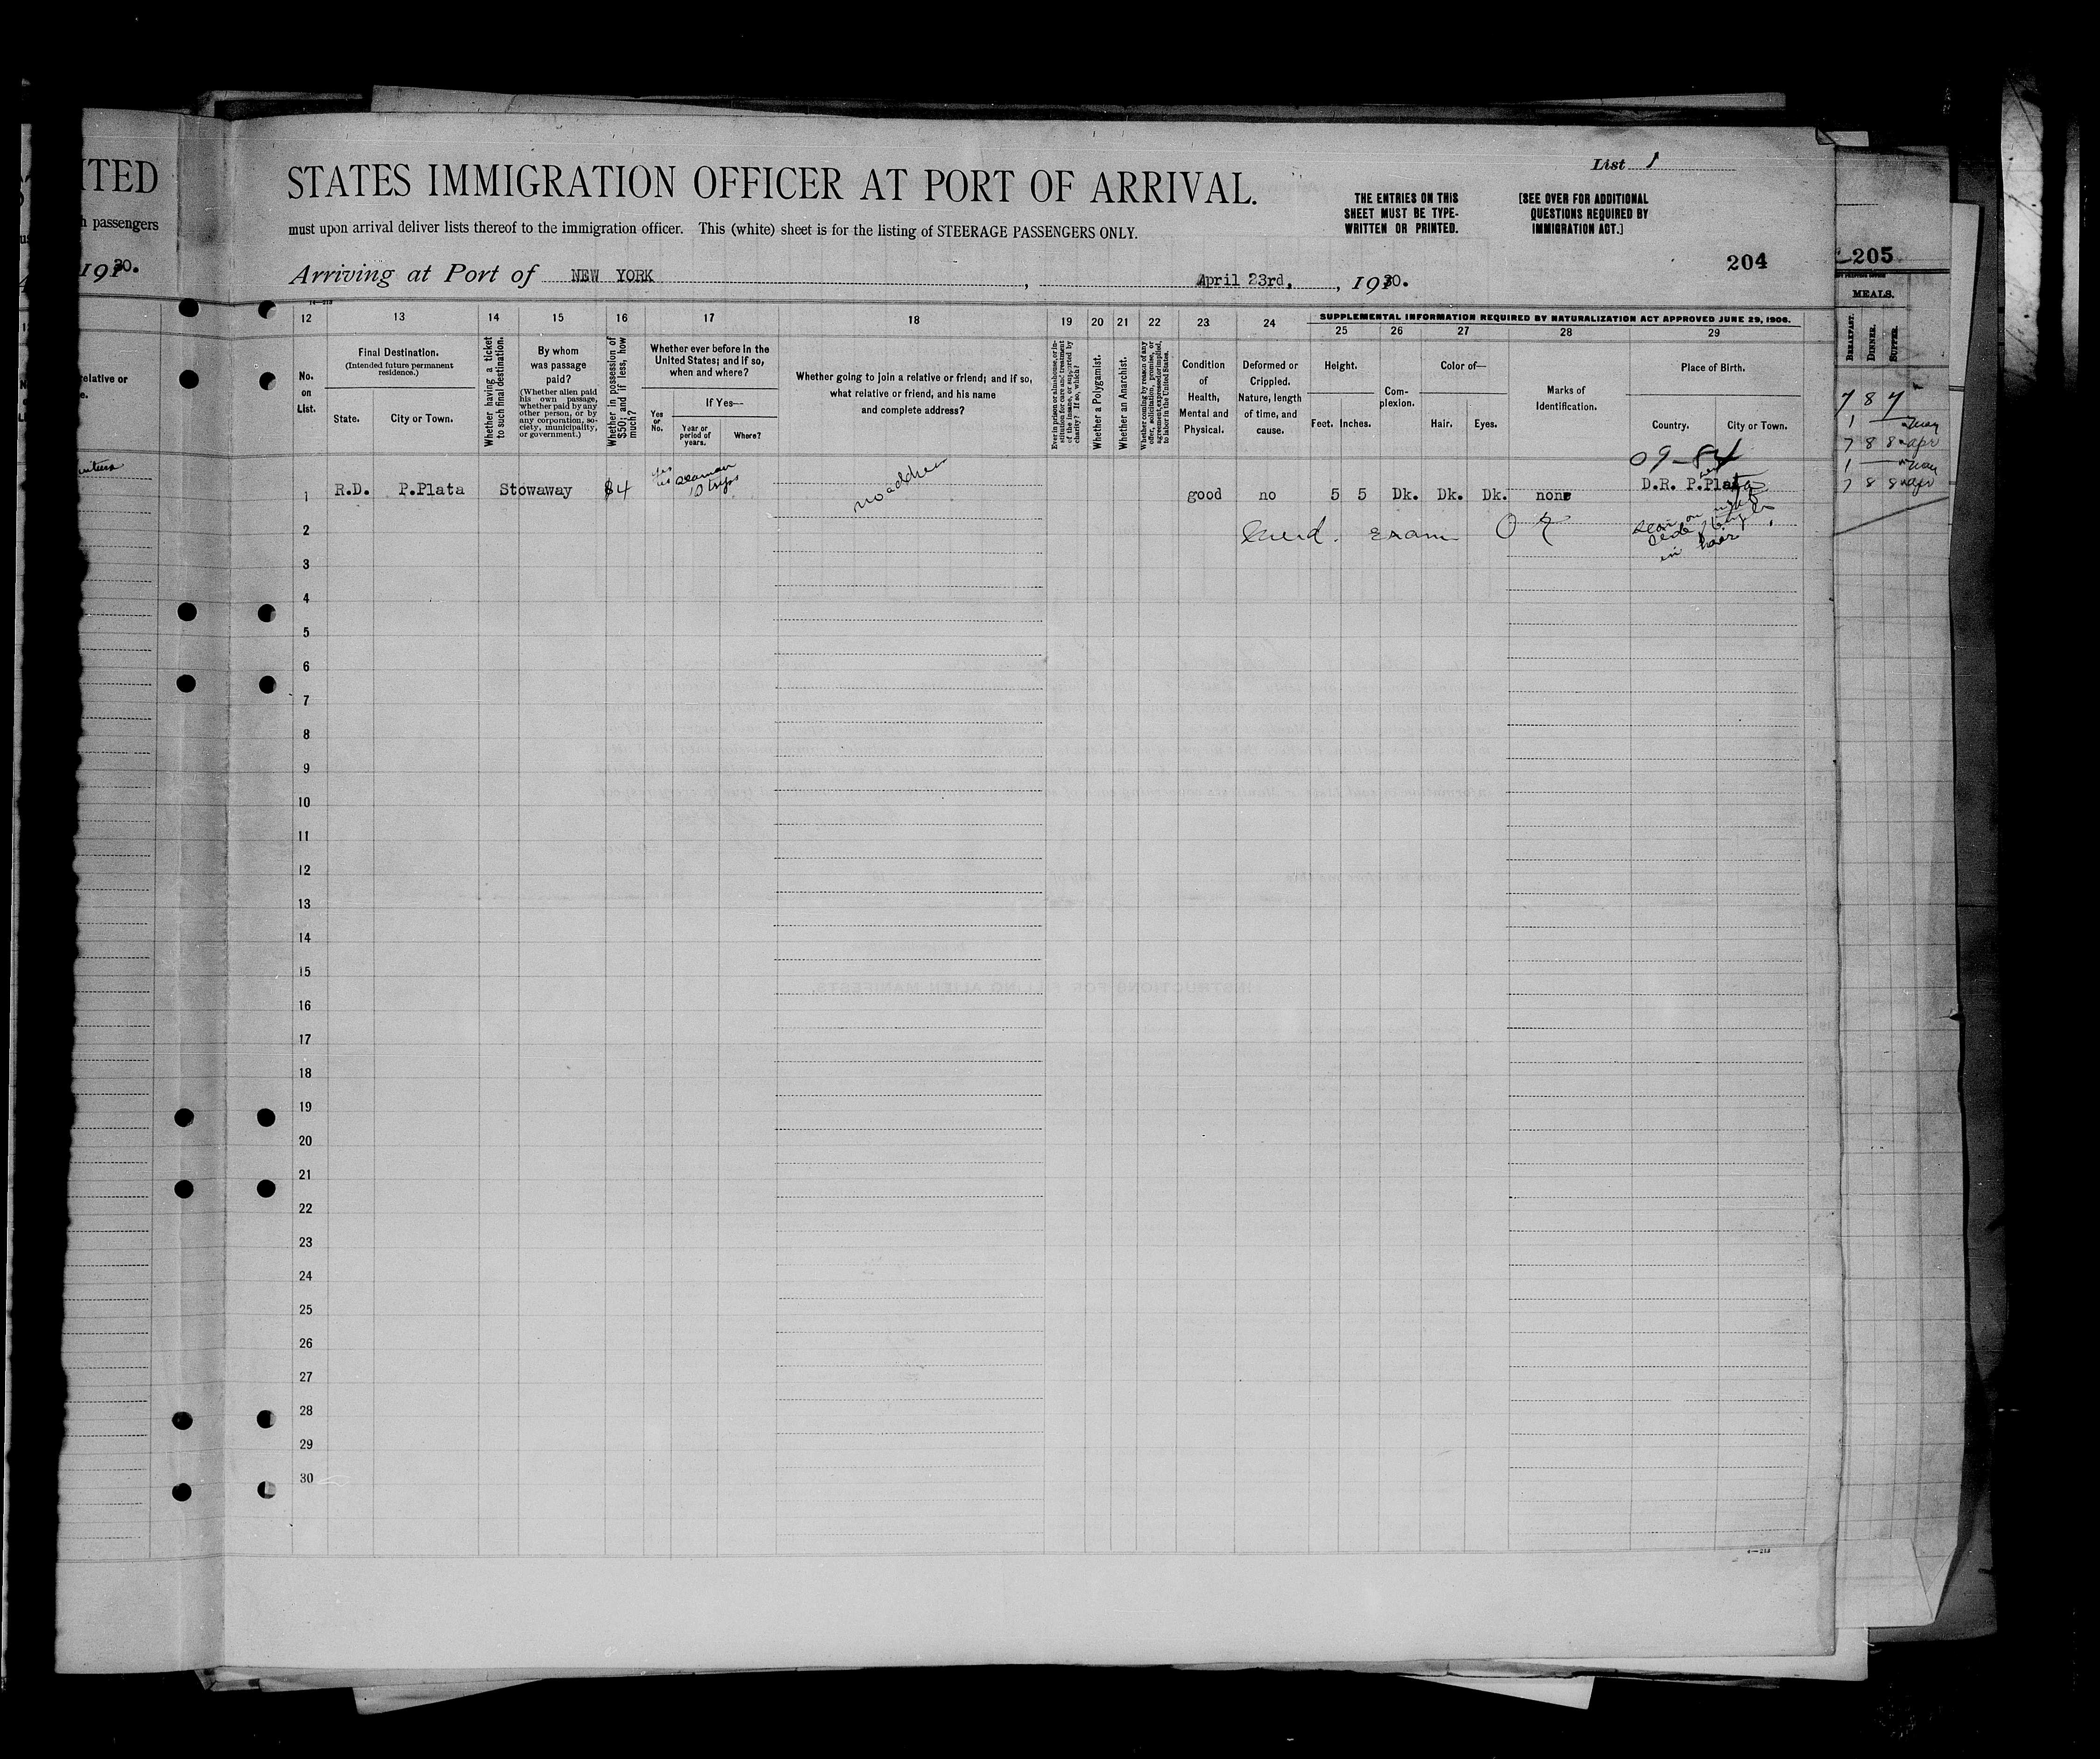 ITED
h passengers
1920.
elative or
e.
List 1
STATES IMMIGRATION OFFICER AT PORT OF ARRIVAL.
THE ENTRIES ON THIS
SHEET MUST BE TYPE-
WRITTEN OR PRINTED.
[SEE OVER FOR ADDITIONAL
QUESTIONS REQUIRED BY
IMMIGRATION ACT.]
must upon arrival deliver lists thereof to the immigration officer. This (white) sheet is for the listing of STEERAGE PASSENGERS ONLY.
204
Arriving at Port of NEW YORK, April 23rd, 1920.
12 13 14 15 16 17 18 19 20 21 22 23 24
SUPPLEMENTAL INFORMATION REQUIRED BY NATURALIZATION ACT APPROVED JUNE 29, 1906.
25 26 27 28 29
No.
on
List.
Final Destination.
(Intended future permanent
residence.)
State. City or Town.
Whether having a ticket
to such final destination.
By whom
was passage
paid?
(Whether alien paid
his own passage,
whether paid by any
other person, or by
any corporation, so-
ciety, municipality,
or government.)
Whether in possession of
$50; and if less, how
much?
Whether ever before in the
United States; and if so,
when and where?
Yes
or
No.
If Yes—
Year or
period of
years.
Where?
Whether going to join a relative or friend; and if so,
what relative or friend, and his name
and complete address?
Ever in prison or almshouse, or in-
stitution for care and treatment
of the insane, or supported by
charity? If so, which?
Whether a Polygamist.
Whether an Anarchist.
Whether coming by reason of any
offer, solicitation, promise, or
agreement, expressed or implied,
to labor in the United States.
Condition
of
Health,
Mental and
Physical.
Deformed or
Crippled.
Nature, length
of time, and
cause.
Height.
Feet. Inches.
Com-
plexion.
Color of—
Hair. Eyes.
Marks of
Identification.
Place of Birth.
Country. City or Town.
09-84
1 R.D. P.Plata Stowaway $4 yes seaman 10 trips no address good no 5 5 Dk. Dk. Dk. none D.R. P.Plata
2 Exam OK
scar on right
side
in hair
3
4
5
6
7
8
9
10
11
12
13
14
15
16
17
18
19
20
21
22
23
24
25
26
27
28
29
30
205
MEALS.
BREAKFAST. DINNER. SUPPER.
7 8 7
1
7 8 8 apr
1
7 8 8 apr